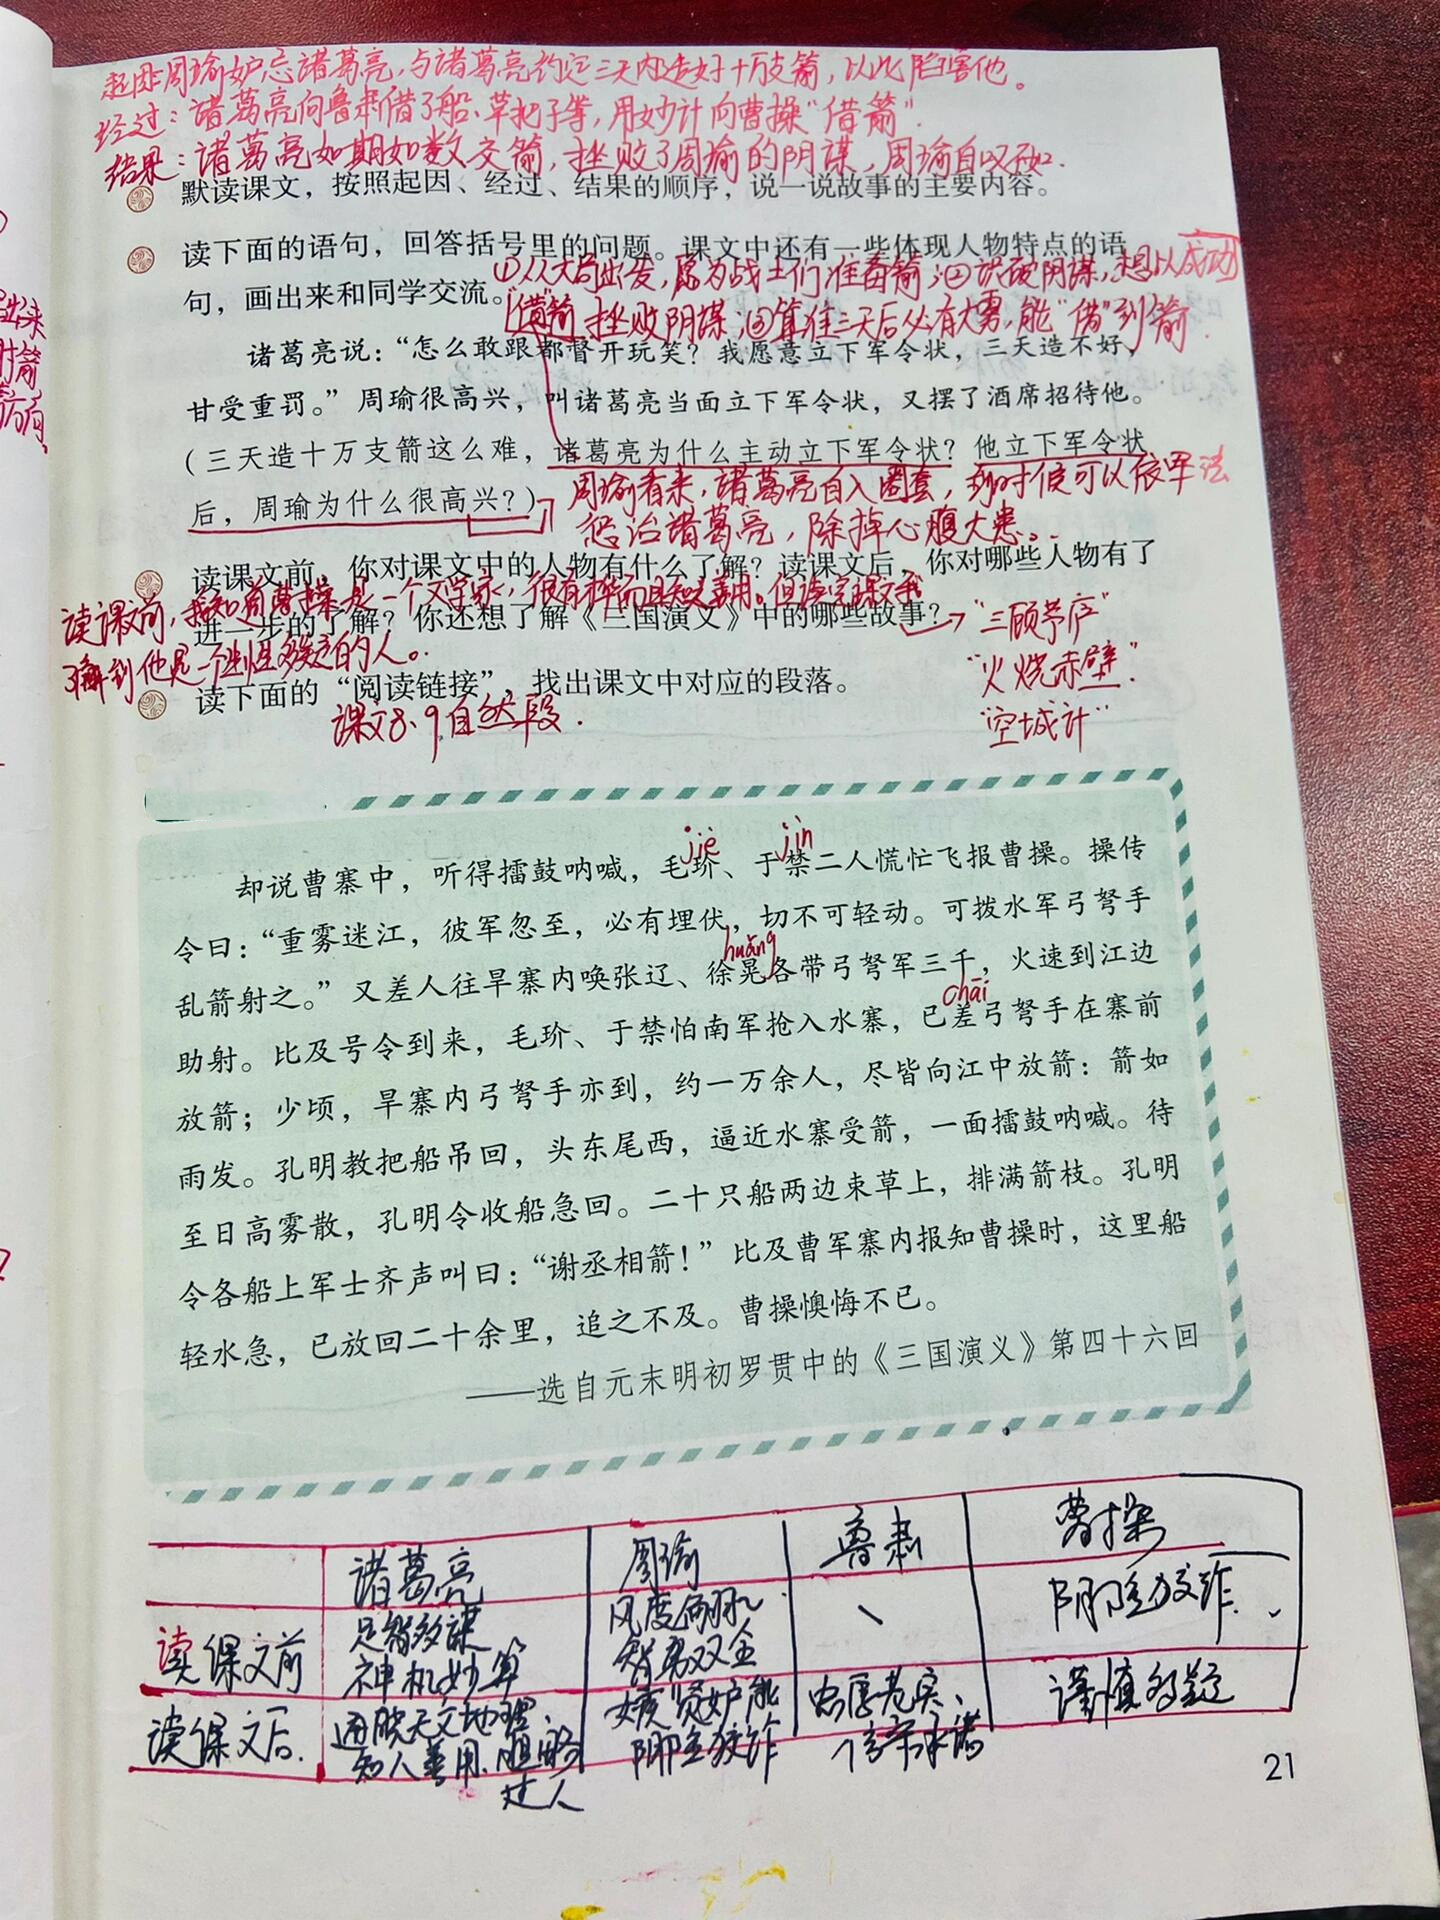 起因:周瑜妒忌诸葛亮,与诸葛亮约定三天内造好十万支箭,以此陷害他。
经过:诸葛亮向鲁肃借了船、草把子等,用妙计向曹操“借箭”.
结果:诸葛亮如期如数交箭,挫败了周瑜的阴谋,周瑜自叹不如.
默读课文，按照起因、经过、结果的顺序，说一说故事的主要内容。
读下面的语句，回答括号里的问题。课文中还有一些体现人物特点的语
句，画出来和同学交流。
①从大局出发,愿为战士们准备箭;②识破阴谋,想以成功
“借”箭 挫败阴谋;③算准三天后必有大雾,能“借”到箭.
诸葛亮说：“怎么敢跟都督开玩笑？我愿意立下军令状，三天造不好，
甘受重罚。”周瑜很高兴，叫诸葛亮当面立下军令状，又摆了酒席招待他。
（三天造十万支箭这么难，诸葛亮为什么主动立下军令状？他立下军令状
后，周瑜为什么很高兴？）
周瑜看来,诸葛亮自入圈套,到时候可以依军法
惩治诸葛亮,除掉心腹大患。
读课文前，你对课文中的人物有什么了解？读课文后，你对哪些人物有了
进一步的了解？你还想了解《三国演义》中的哪些故事？
读课文前,我知道曹操是一个文学家,很有才华而且知人善用。但读完课文我
了解到他是一个生性多疑的人。
“三顾茅庐”
“火烧赤壁”
“空城计”
读下面的“阅读链接”，找出课文中对应的段落。
课文8、9自然段.
jiè jìn
却说曹寨中，听得擂鼓呐喊，毛玠、于禁二人慌忙飞报曹操。操传
令曰：“重雾迷江，彼军忽至，必有埋伏，切不可轻动。可拨水军弓弩手
huǎng
乱箭射之。”又差人往旱寨内唤张辽、徐晃各带弓弩军三千，火速到江边
chāi
助射。比及号令到来，毛玠、于禁怕南军抢入水寨，已差弓弩手在寨前
放箭；少顷，旱寨内弓弩手亦到，约一万余人，尽皆向江中放箭：箭如
雨发。孔明教把船吊回，头东尾西，逼近水寨受箭，一面擂鼓呐喊。待
至日高雾散，孔明令收船急回。二十只船两边束草上，排满箭枝。孔明
令各船上军士齐声叫曰：“谢丞相箭！”比及曹军寨内报知曹操时，这里船
轻水急，已放回二十余里，追之不及。曹操懊悔不已。
——选自元末明初罗贯中的《三国演义》第四十六回
诸葛亮 周瑜 鲁肃 曹操
读课文前 足智多谋 神机妙算 风度翩翩 智勇双全 \ 阴险狡诈.
读课文后. 通晓天文地理、知人善用、胆略过人 嫉贤妒能 阴险狡诈 忠厚老实、信守承诺 谨慎多疑
21